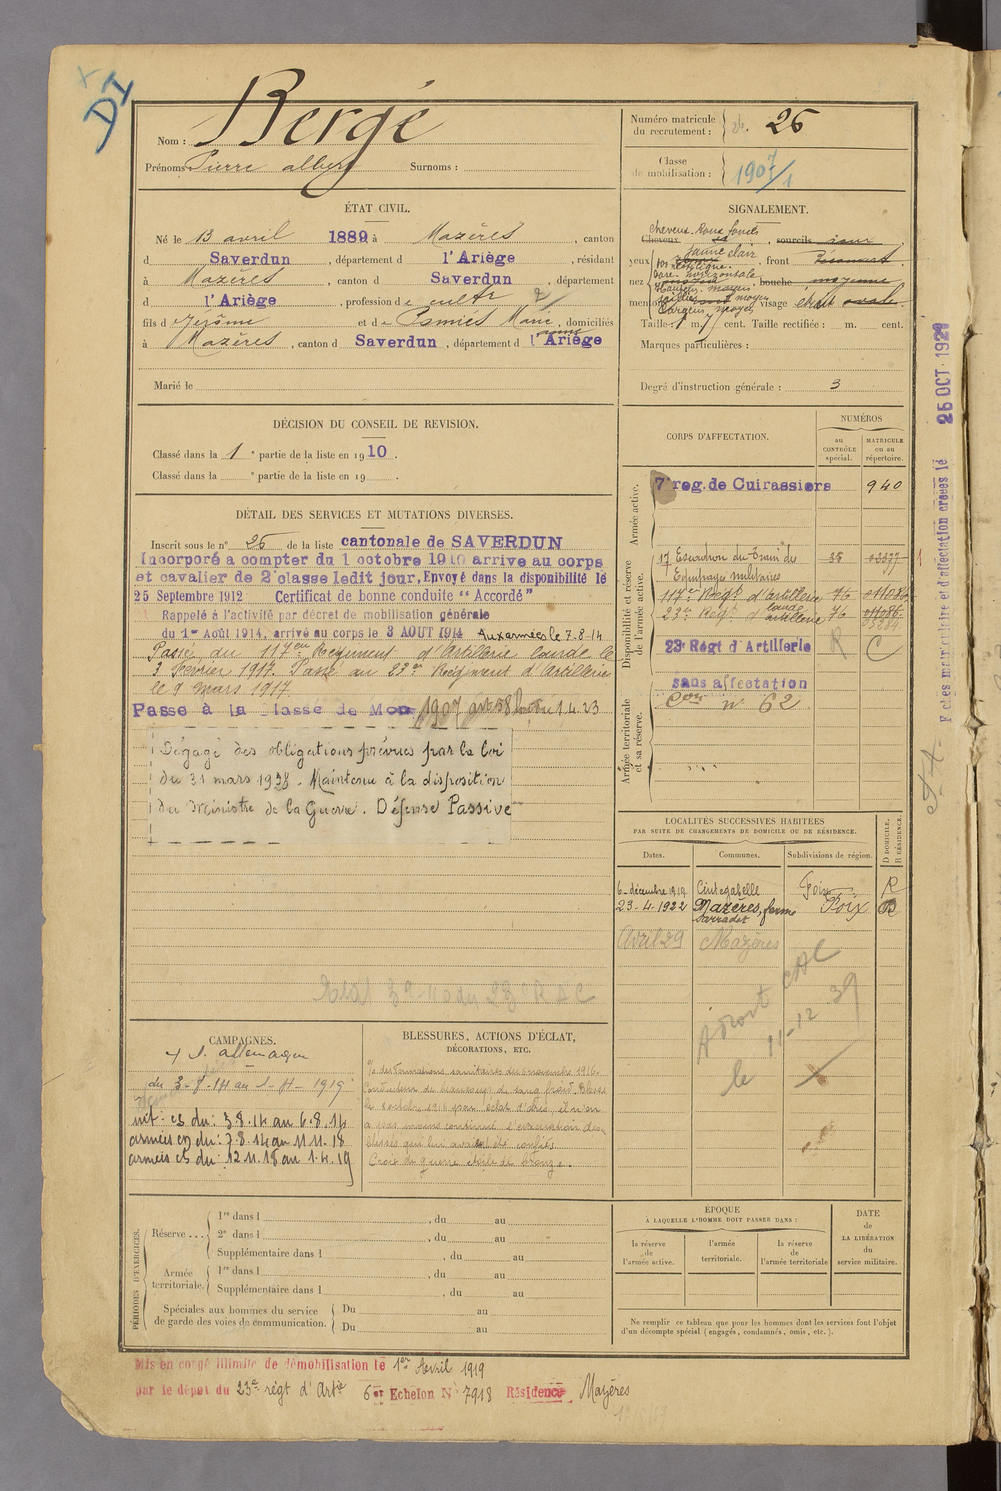 DI
Nom : Bergé
Prénoms : Pierre albert Surnoms :
Numéro matricule
du recrutement : 26
Classe
de mobilisation : 1907/1
ÉTAT CIVIL.
Né le 13 avril 1889 à Mazères, canton
d Saverdun, département d l'Ariège, résidant
à Mazères, canton d Saverdun, département
d l'Ariège, profession de cultr
fils d Jérôme et de Pamies Marie, domiciliés
à Mazères, canton d Saverdun, département d l'Ariège
Marié le
SIGNALEMENT.
cheveux Roux foncés
Cheveux , sourcils
yeux jaune clair, front
dos rectiligne
base horizontale
nez bouche moyenne
Hauteur moyen
saillie moyen
menton visage etroit ovale
Largeur moyen
Taille : 1 m. 7 cent. Taille rectifiée : m. cent.
Marques particulières :
Degré d'instruction générale : 3
DÉCISION DU CONSEIL DE REVISION.
Classé dans la 1 e partie de la liste en 1910.
Classé dans la e partie de la liste en 19 .
CORPS D'AFFECTATION.
NUMÉROS
au
CONTRÔLE
spécial.
MATRICULE
ou au
répertoire.
Armée active.
7e reg. de Cuirassiers 940
Disponibilité et réserve
de l'armée active.
17 Escadron du Train des 2377
Equipages militaires
117e Régt d'artillerie 76
23e Régt lourde artillerie 76
23e Régt d'Artillerie R C
sans affectation
n° 62
Armée territoriale
et sa réserve.
DÉTAIL DES SERVICES ET MUTATIONS DIVERSES.
Inscrit sous le n° 26 de la liste cantonale de SAVERDUN
Incorporé a compter du 1 octobre 1910 arrive au corps
et cavalier de 2e classe ledit jour, Envoyé dans la disponibilité le
25 Septembre 1912 Certificat de bonne conduite "Accordé"
Rappelé à l'activité par décret de mobilisation générale
du 1er Août 1914, arrivé au corps le 3 AOUT 1914 Aux armées le 7-8-14
Passé du 117eme Régiment d'Artillerie lourde le
3 février 1917. Passé au 23e Régiment d'Artillerie
le 9 mars 1917.
Passe à la Classe de Mob 1907 art 58 1.4.23
Dégagé des obligations prévues par la loi
du 31 mars 1928. Maintenu à la disposition
du Ministre de la Guerre. Défense Passive
LOCALITÉS SUCCESSIVES HABITÉES
PAR SUITE DE CHANGEMENTS DE DOMICILE OU DE RÉSIDENCE.
Dates. Communes. Subdivisions de région. D DOMICILE. R RÉSIDENCE.
6 décembre 1919 Cintegabelle Foix R
23-4-1922 Mazères, ferme Foix
Sarradet
Avril 29 Mazères
le 11-12 39
CAMPAGNES.
du 3-8-14 au 1-4-1919
int. cs du : 3.8.14 au 6.8.14
armées cs du : 7.8.14 au 11.11.18
armées cs du : 12.11.18 au 1.4.19
BLESSURES, ACTIONS D'ÉCLAT,
DÉCORATIONS, ETC.
des formations sanitaires du 6 novembre 1916.
Conducteur de beaucoup de sang froid. Blessé
le octobre 1916 par éclat d'obus, il n'en
a pas moins continué l'évacuation des
blessés qui lui avaient été confiés
Croix de guerre étoile de bronze.
PÉRIODES D'EXERCICES.
Réserve ... 1re dans l , du au
2e dans l , du au
Supplémentaire dans l , du au
Armée
territoriale. 1re dans l , du au
Supplémentaire dans l , du au
Spéciales aux hommes du service
de garde des voies de communication. Du au
Du au
ÉPOQUE
A LAQUELLE L'HOMME DOIT PASSER DANS :
la réserve
de
l'armée active.
l'armée
territoriale.
la réserve
de
l'armée territoriale
DATE
de
LA LIBÉRATION
du
service militaire.
Ne remplir ce tableau que pour les hommes dont les services font l'objet
d'un décompte spécial (engagés, condamnés, omis, etc.).
Mis en congé illimité de démobilisation le 1er Avril 1919
par le dépot du 23e régt d'Artie 6em Echelon N° 7918 Résidence Mazères
F et les matricule et d'affectation créés le 25 OCT. 1927